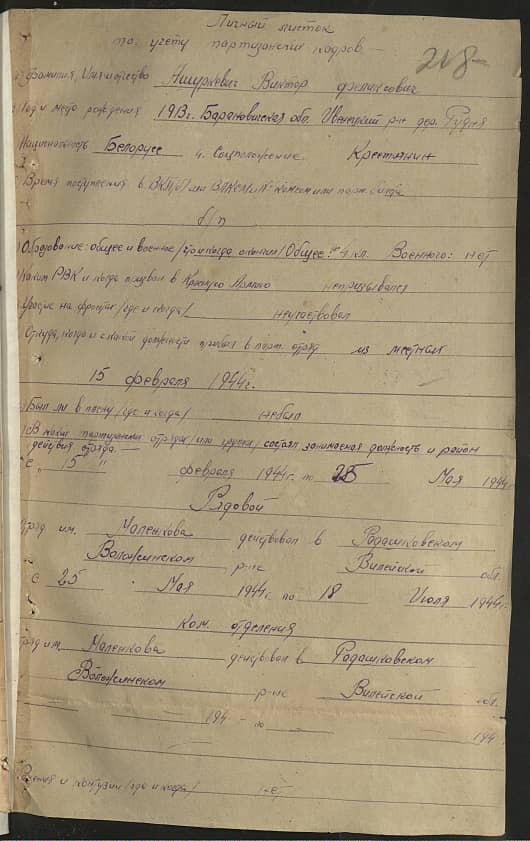 Личный листок
по учету партизанских кадров —
218
Фамилия, Имя и отчество Ашуркевич Виктор Феликсович
Год и место рождения 1913г. Барановичская обл. Ивенецкий р-н дер. Рудня
Национальность Белорусс 4. Соцположение Крестьянин
Время поступления в ВКП(б) или ВЛКСМ
б/п
Образование: общее и военное /что и когда окончил/ Общее: 4 кл. Военного: нет
Каким РВК и когда призван в Красную Армию непризывался
Участие на фронте /где и когда/ неучаствовал
Откуда, когда и с какой должности прибыл в парт. отряд из местных
15 февраля 1944г.
Был ли в плену /где и когда/ небыл
В каких партизанских отрядах /или группах/ состоял занимаемая должность и район
действия отряда.—
"с" 15 " февраля 1944г. по 25 Мая 1944г.
Рядовой
Отряд им. Маленкова действовал в Радашковском
Воложинском р-не Вилейской обл.
с 25 Мая 1944г. по 18 Июля 1944г.
Ком. отделения
Отряд им. Маленкова действовал в Радашковском
Воложинском р-не Вилейской обл.
194 - по 194
Ранения и контузии /где и когда/ нет